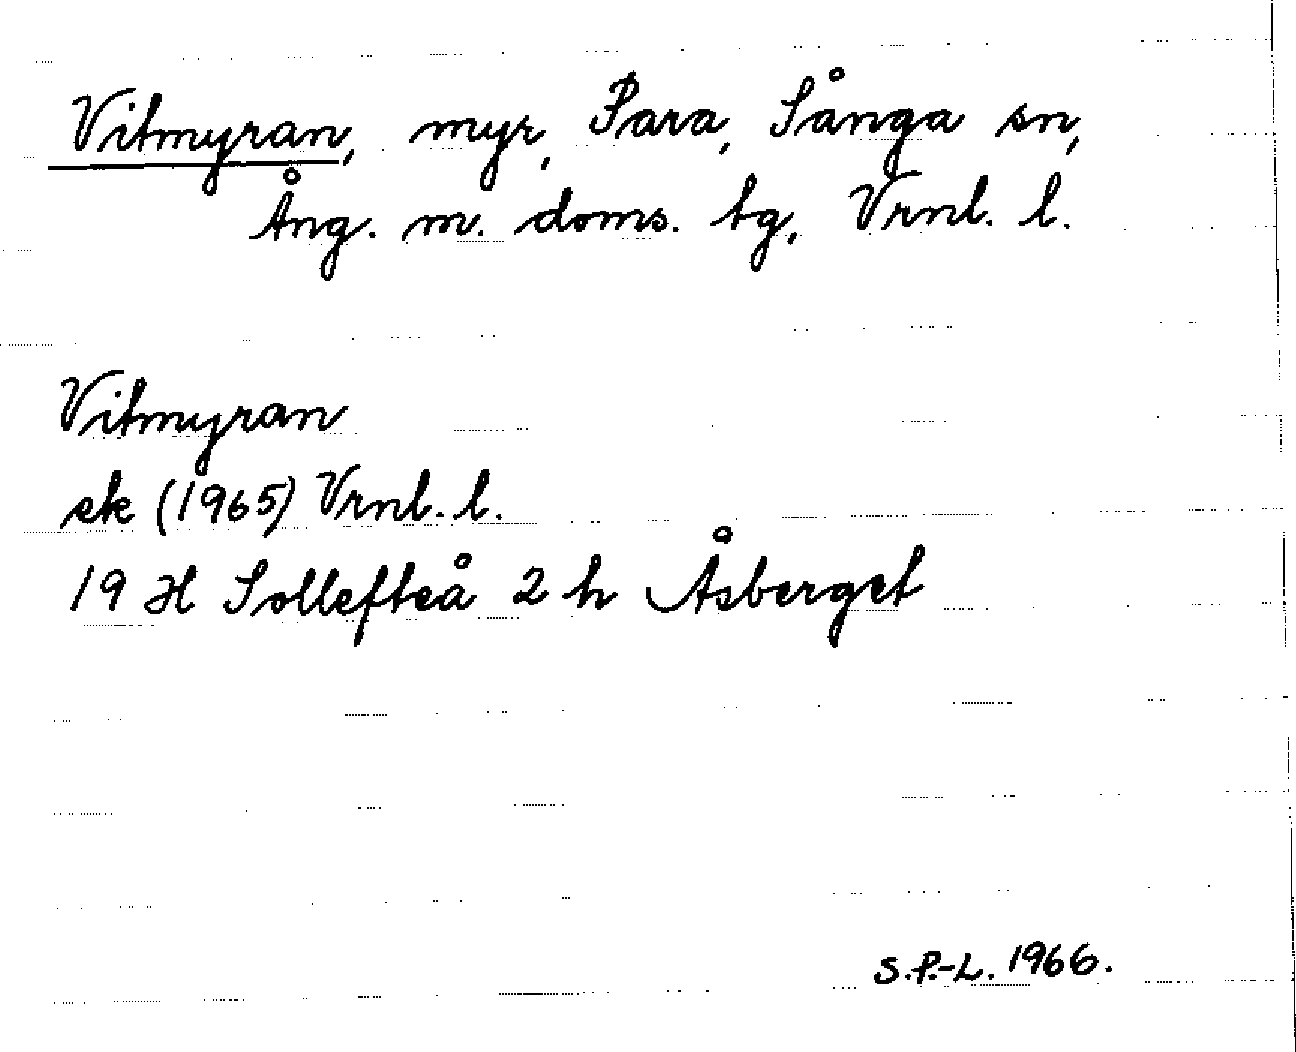 Vitmyran, myr, Para, Sånga sn,
Ång. m. doms. tg, Vrnl. l.
Vitmyran
ek (1965) Vrnl. l.
19 H Sollefteå 2 h Åsberget
S.P.-L. 1966.